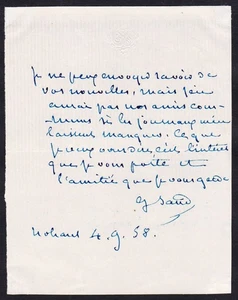 je ne peux envoyer savoir de
vos nouvelles, mais j'en
aurais par nos amis com-
muns si les journaux m'en
laissent manquer. Ce que
je veux vous dire c'est l'intérêt
que je vous porte et
l'amitié que je vous garde
G Sand
Nohant 4. 9. 58.